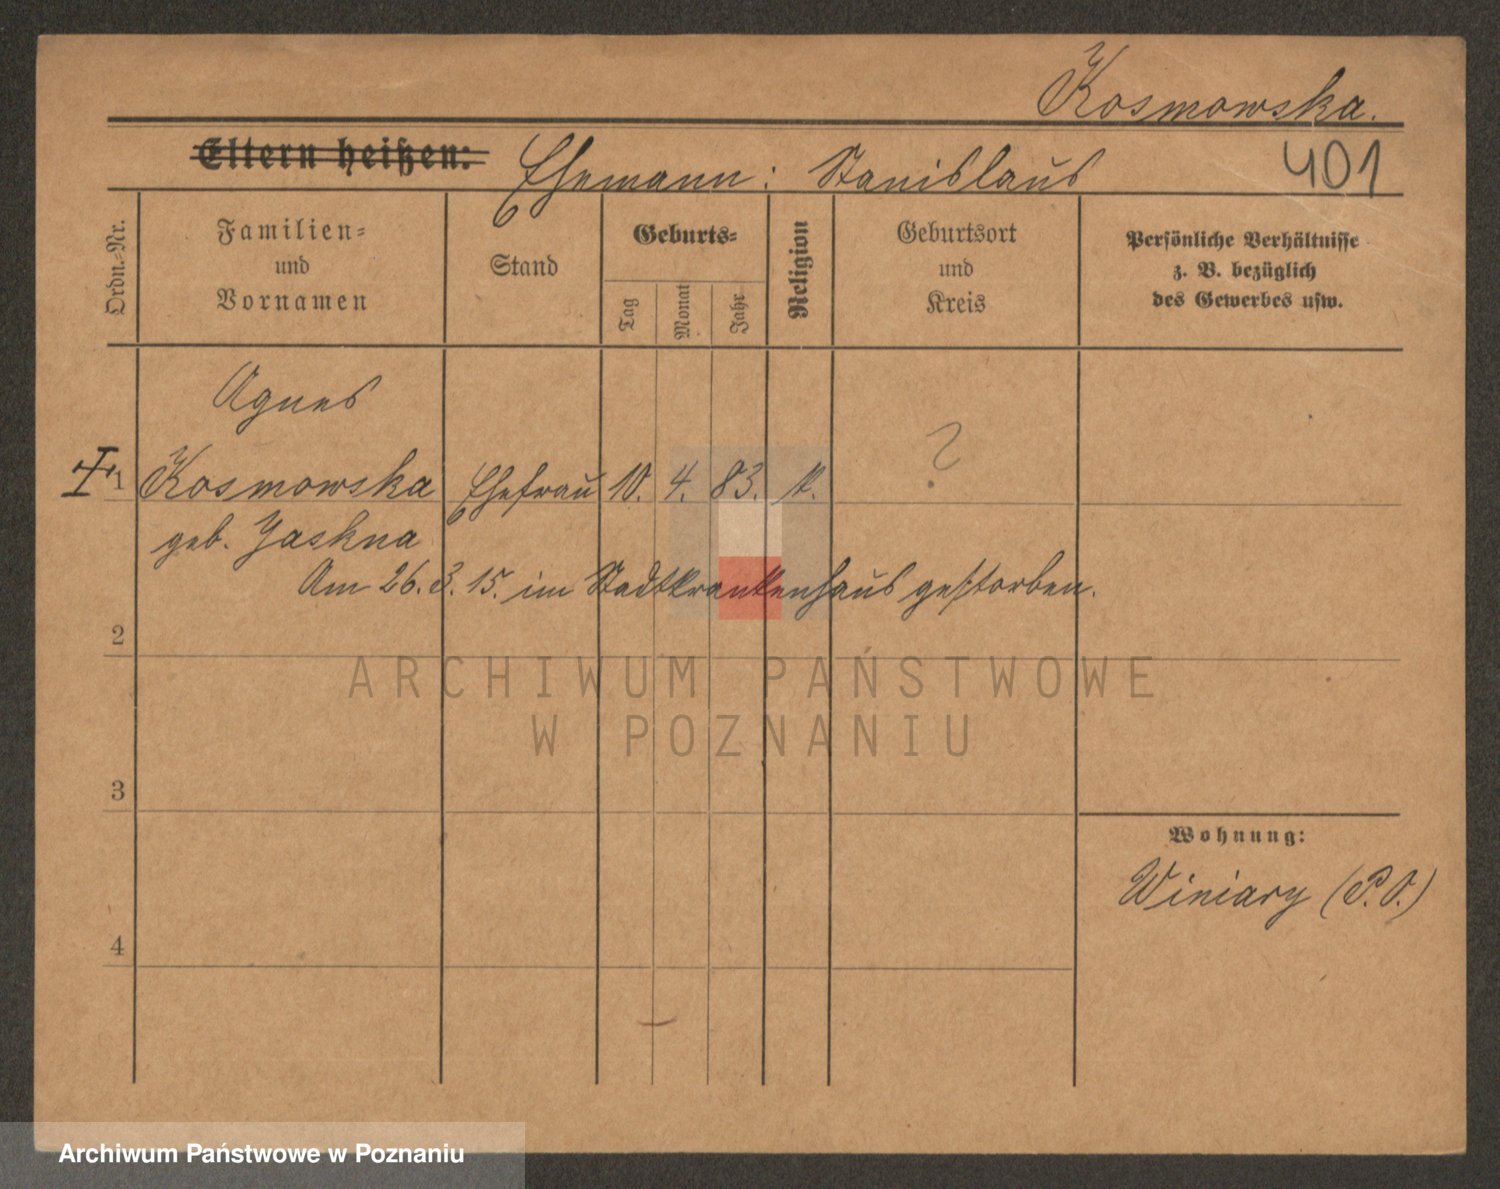 Kosmowska.
Eltern heißen: Ehemann: Stanislaus
401
Ordn.-Nr.
Familien-
und
Vornamen
Stand
Geburts-
Tag
Monat
Jahr
Religion
Geburtsort
und
Kreis
Persönliche Verhältnisse
z. B. bezüglich
des Gewerbes usw.
Agnes
1 Kosmowska Ehefrau 10. 4. 83. k. ?
geb. Jaskna
Am 26.3.15. im Stadtkrankenhaus gestorben.
2
ARCHIWUM PAŃSTWOWE
W POZNANIU
3
Wohnung:
Winiary (P.O.)
4
Archiwum Państwowe w Poznaniu